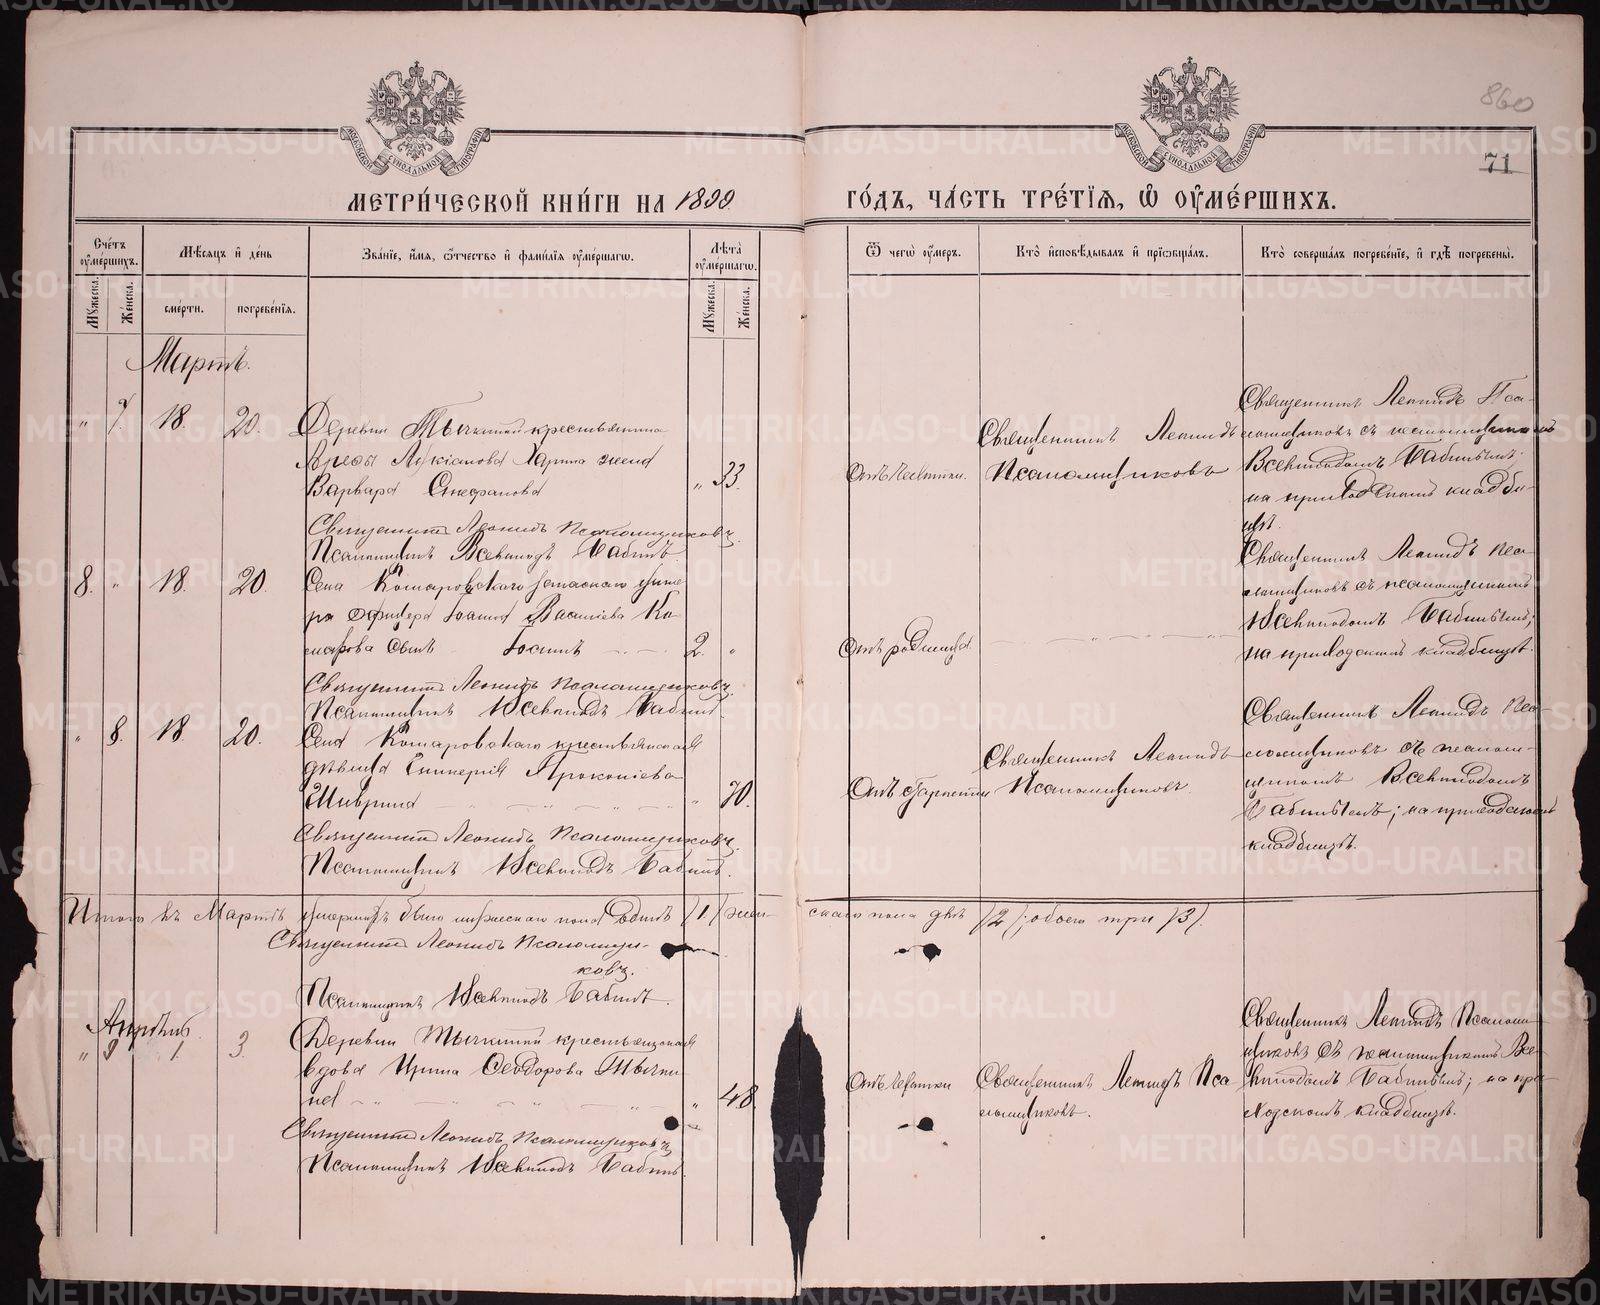 860
71
МОСКОВСКОЙ СѴНОДАЛЬНОЙ ТИПОГРАФІИ
МОСКОВСКОЙ СѴНОДАЛЬНОЙ ТИПОГРАФІИ
МЕТРИ́ЧЕСКОЙ КНИ́ГИ НА
ГО́ДЪ, ЧА́СТЬ ТРЕ́ТІѦ, Ѿ ОУМЕ́РШИХЪ.
Сче́тъ оуме́ршихъ.
Мѣсяцъ и҆ де́нь
Зва́нїе, и҆мя, ѻ҆тчество и҆ фами́лїя оуме́ршагѡ.
Лѣта̀ оуме́ршагѡ.
Ѿ чегѡ̀ оу҆меръ.
Кто̀ и҆сповѣдывалъ и҆ прїѡбща́лъ.
Кто̀ соверша́лъ погребе́нїе, и҆ гдѣ̀ погребены̀.
Мꙋжеска.
Же́нска.
сме́рти.
погребе́нїя.
Мꙋжеска.
Же́нска.
Мартъ.
" 7. 18. 20.
Деревни Тычкиной крестьянина
жена
Варвара Стефанова " 33.
Отъ чахотки.
Священникъ Леонидъ
Псаломщиковъ
Священникъ Леонидъ Пса-
ломщиковъ съ псаломщикомъ
Всеволодомъ Бабинымъ
на приходскомъ кладби-
щѣ.
Священникъ Леонидъ Псаломщиковъ.
Псаломщикъ Всеволодъ Бабинъ
8. " 18. 20.
Села Комаровскаго запаснаго унте-
ра офицера Іоанна Василіева Ко-
марова сынъ Іоаннъ 2. "
Отъ родимца.
Священникъ Леонидъ Пса-
ломщиковъ съ псаломщикомъ
Всеволодомъ Бабинымъ;
на приходскомъ кладбищѣ.
Священникъ Леонидъ Псаломщиковъ.
Псаломщикъ Всеволодъ Бабинъ.
" 8. 18. 20.
Села Комаровскаго крестьянская
дѣвица Гликерія Прокопіева
" 70.
Отъ старости
Священникъ Леонидъ
Псаломщиковъ.
Священникъ Леонидъ Пса-
ломщиковъ съ псалом-
щикомъ Всеволодомъ
Бабинымъ; на приходскомъ
кладбищѣ.
Священникъ Леонидъ Псаломщиковъ.
Псаломщикъ Всеволодъ Бабинъ.
Итого въ Мартѣ умершихъ было мужескаго пола одинъ (1) жен-
скаго пола двѣ (2); обоего три (3).
Священникъ Леонидъ Псаломщи-
ковъ.
Псаломщикъ Всеволодъ Бабинъ.
Апрѣль
" 9 1 3
Деревни Тычкиной крестьянская
вдова Ирина Ѳеодорова Тычки-
на " 48.
Отъ чахотки
Священникъ Леонидъ Пса-
ломщиковъ.
Священникъ Леонидъ Псалом-
щиковъ съ псаломщикомъ Все-
володомъ Бабинымъ; на при-
ходскомъ кладбищѣ.
Священникъ Леонидъ Псаломщиковъ
Псаломщикъ Всеволодъ Бабинъ.
METRIKI.GASO-URAL.RU